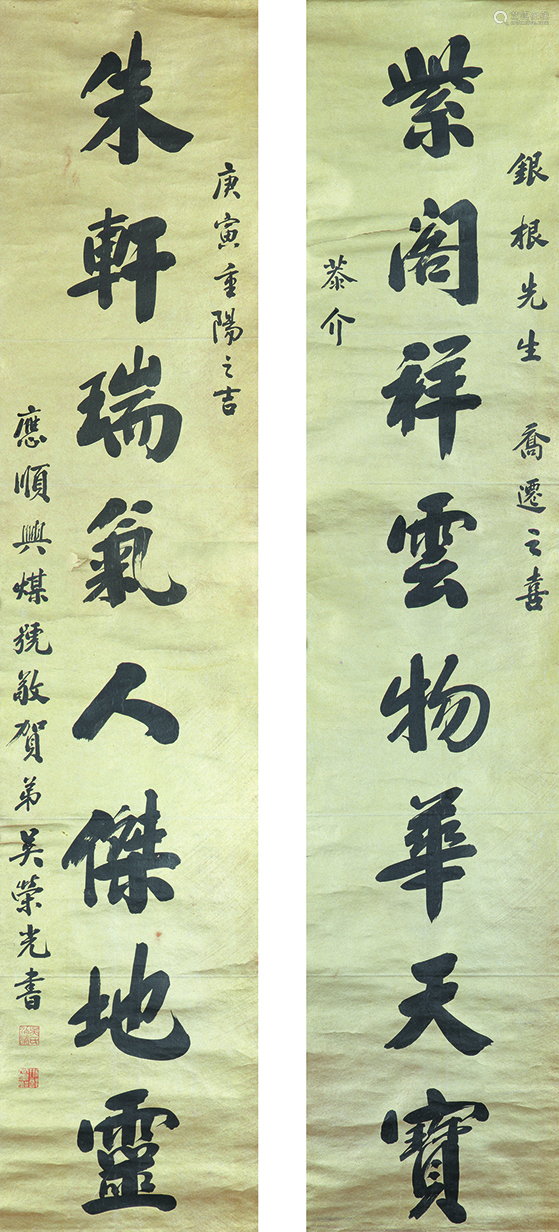 紫閣祥雲物華天寶
銀根先生 喬遷之喜
恭介
朱軒瑞氣人傑地靈
庚寅重陽之吉
應順興煤號敬賀弟吳榮光書